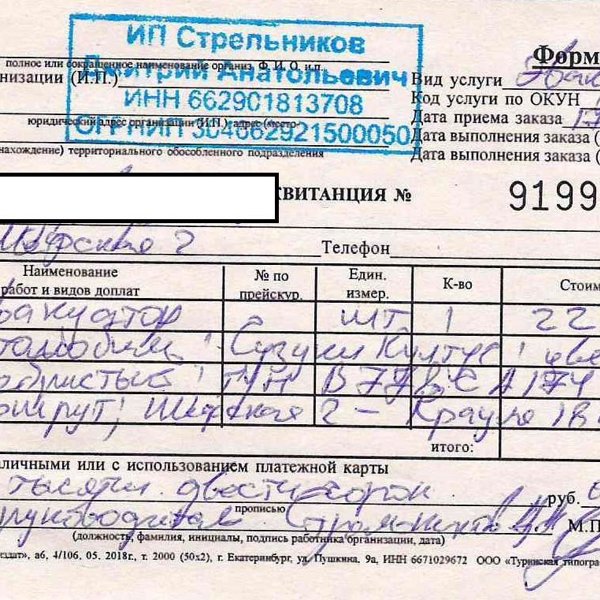 ИП Стрельников
Форм
полное или сокращенное наименование организ, Ф. И. О. и.п.
Дмитрий Анатольевич
низации (И.П.)
Вид услуги
ИНН 662901813708
Код услуги по ОКУН
юридический адрес организации (И.П.)
Дата приема заказа
ОГРНИП 304662921500050
Дата выполнения заказа (
нахождение) территориального обособленного подразделения
Дата выполнения заказа (
КВИТАНЦИЯ № 9199
2 Телефон
Наименование № по Един. К-во Стоим
работ и видов доплат прейскур. измер.
вакуатор ШТ 1 22
томобиль! Сузуки Култус! цве
ебристый! Г/Н В 778 СА 174
ршрут; 2 – Крауля 18
итого:
аличными или с использованием платежной карты
тысячи двести сорок руб.
прописью
руководитель М.П.
(должность, фамилия, инициалы, подпись работника организации, дата)
здат», а6, 4/106, 05. 2018г., т. 2000 (50х2), г. Екатеринбург, ул. Пушкина, 9а, ИНН 6671029672 ООО «Туринская типогра